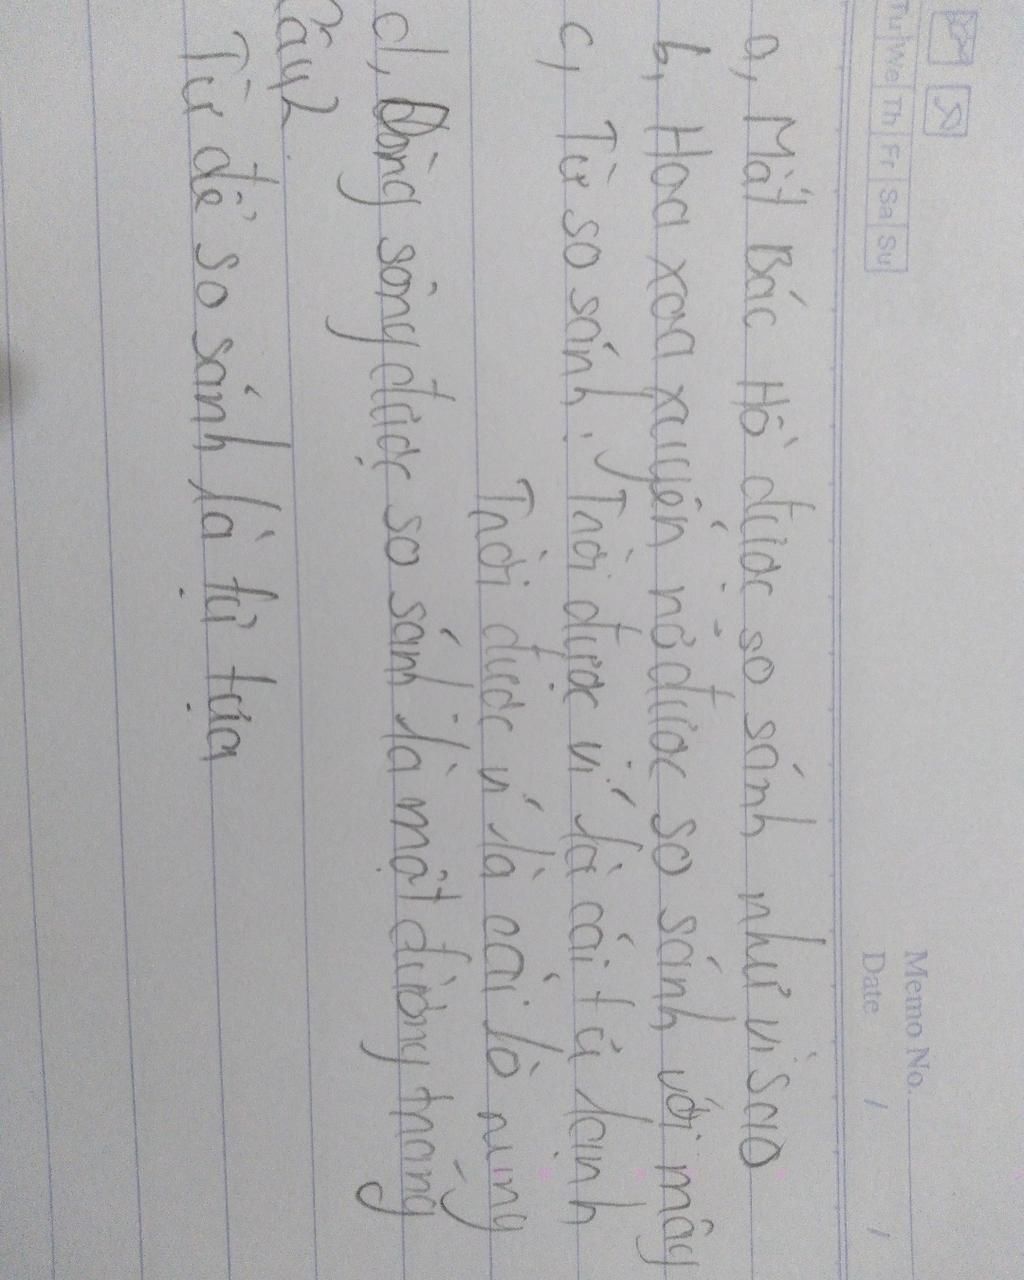 Memo No.
Tu We Th Fr Sa Su
Date / /
a, Mắt Bác Hồ được so sánh như vì sao
b, Hoa xoa xuyến nở được so sánh với mây
c, Từ so sánh. Trời được ví là cái tủ lạnh
Trời được ví là cái lò nung
d, Dòng sông được so sánh là một đường trăng
Câu 2
Từ để so sánh là từ tựa